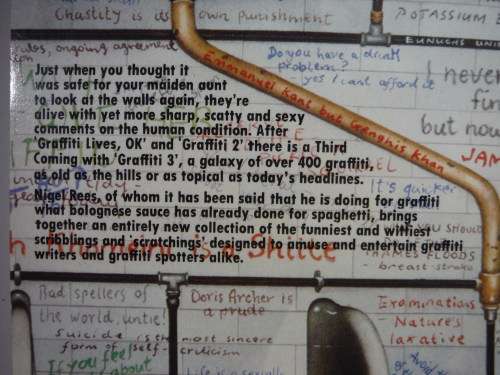 Chastity is its own punishment
POTASSIUM
EUNUCHS UNI
rules, ongoing agreement
Do you have a drink
problem?
yes I cant afford it
Emmanuel Kant but Genghis Khan
I never
but now
JAM
Just when you thought it
was safe for your maiden aunt
to look at the walls again, they're
alive with yet more sharp, scatty and sexy
comments on the human condition. After
'Graffiti Lives, OK' and 'Graffiti 2' there is a Third
Coming with 'Graffiti 3', a galaxy of over 400 graffiti,
as old as the hills or as topical as today's headlines.
It's quicker
Nigel Rees, of whom it has been said that he is doing for graffiti
what bolognese sauce has already done for spaghetti, brings
together an entirely new collection of the funniest and wittiest
scribblings and scratchings designed to amuse and entertain graffiti
writers and graffiti spotters alike.
YOU SHOULD
THAMES FLOODS
- breast stroke
is a Shittle
Bad spellers of
the world, untie!
Doris Archer is
a prude
Examinations
Nature's
laxative
Suicide is the most sincere
form of self-criticism
If you feel
about
Life is a sexually